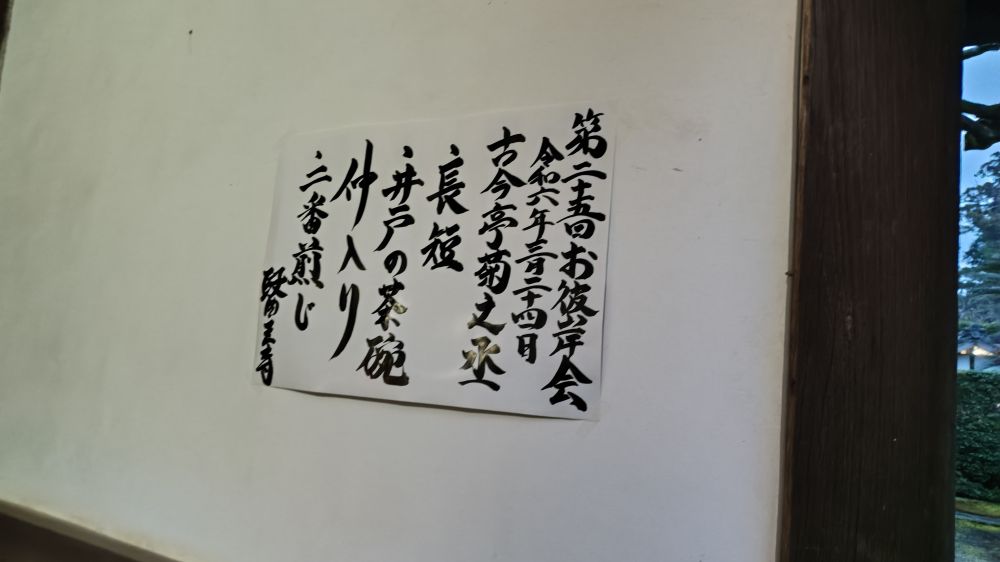 第二十五回お彼岸会
令和六年三月二十四日
古今亭菊之丞
、長短
、井戸の茶碗
仲入り
、二番煎じ
醫王寺